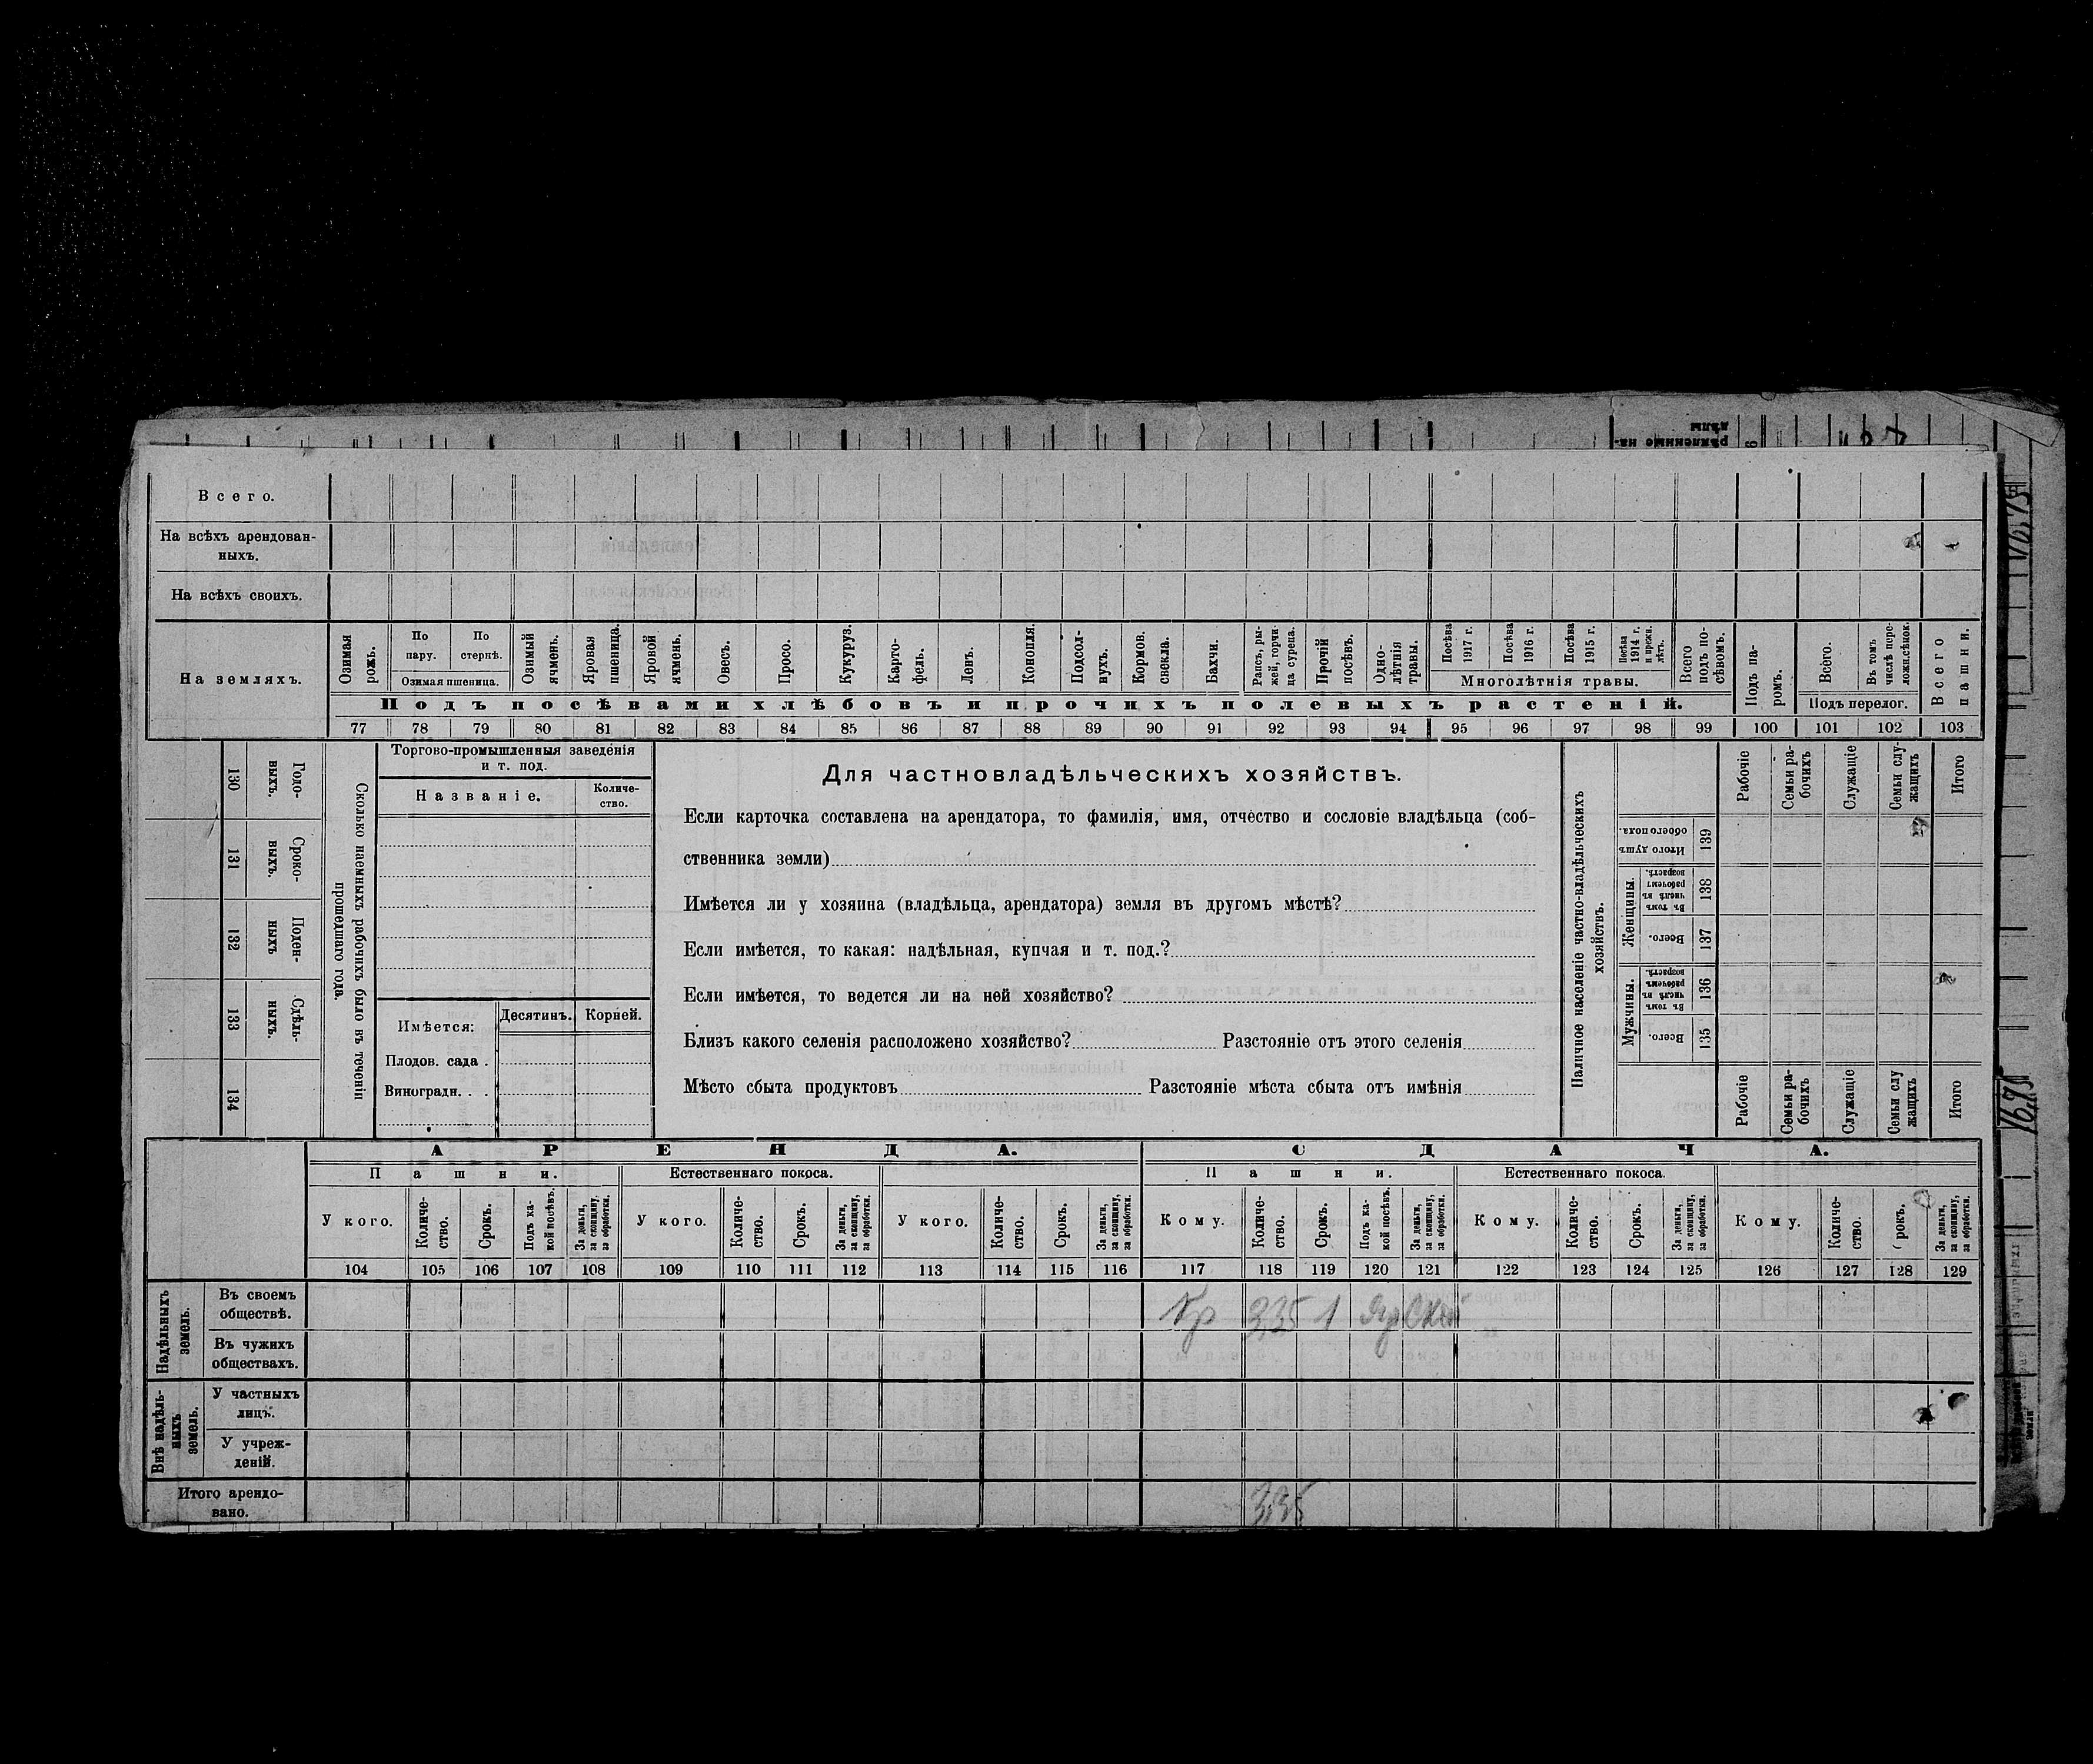 Всего.
На всѣхъ арендован-
ныхъ.
На всѣхъ своихъ.
На земляхъ.
Озимая рожь.
По пару.
По стернѣ.
Озимая пшеница.
Озимый ячмень.
Яровая пшеница.
Яровой ячмень.
Овесъ.
Просо.
Кукуруз.
Карто-
фель.
Ленъ.
Конопля.
Подсол-
нухъ.
Кормов. свекла.
Бахчи.
Рапсъ, ры-
жей, горчи-
ца сурепа.
Прочій посѣвъ.
Одно-
лѣтнія травы.
Посѣва 1917 г.
Посѣва 1916 г.
Посѣва 1915 г.
Посѣва 1914 г. и прежн. лѣтъ.
Многолѣтнія травы.
Всего подъ по-
сѣвомъ.
Подъ па-
ромъ.
Всего.
Въ томъ числѣ пере-
ложн.сѣнок.
Подъ перелог.
Всего пашни.
Подъ посѣвами хлѣбовъ и прочихъ полевыхъ растеній.
77 78 79 80 81 82 83 84 85 86 87 88 89 90 91 92 93 94 95 96 97 98 99 100 101 102 103
130 Годо-
выхъ.
131 Сроко-
выхъ.
132 Поден-
ныхъ
133 Сдѣль-
ныхъ.
134
Сколько наемныхъ рабочихъ было въ теченіи
прошедшаго года.
Торгово-промышленныя заведенія
и т. под.
Названіе.
Количе-
ство.
Имѣется:
Десятинъ.
Корней.
Плодов. сада .
Виноградн. . .
Для частновладѣльческихъ хозяйствъ.
Если карточка составлена на арендатора, то фамилія, имя, отчество и сословіе владѣльца (соб-
ственника земли)
Имѣется ли у хозяина (владѣльца, арендатора) земля въ другомъ мѣстѣ?
Если имѣется, то какая: надѣльная, купчая и т. под.?
Если имѣется, то ведется ли на ней хозяйство?
Близъ какого селенія расположено хозяйство? Разстояніе отъ этого селенія
Мѣсто сбыта продуктовъ Разстояніе мѣста сбыта отъ имѣнія
Наличное населеніе частно-владѣльческихъ
хозяйствъ.
Рабочіе
Семьи ра-
бочихъ
Служащіе
Семьи слу-
жащихъ
Итого
Итого душъ обоего пола. 139
Женщины.
Въ томъ числѣ въ рабочемъ возрастѣ. 138
Всего. 137
Мужчины.
Въ томъ числѣ въ рабочемъ возрастѣ. 136
Всего. 135
Рабочіе
Семьи ра-
бочихъ
Служащіе
Семьи слу
жащихъ
Итого
АРЕНДА.
СДАЧА.
Пашни.
Естественнаго покоса.
Пашни.
Естественнаго покоса.
У кого.
Количе-
ство.
Срокъ.
Подъ ка-
кой посѣвъ.
За деньги, за скопщину, за обработки.
У кого.
Количе-
ство.
Срокъ.
За деньги, за скопщину, за обработки.
У кого.
Количе-
ство.
Срокъ.
За деньги, за скопщину, за обработки.
Кому.
Количе-
ство.
Срокъ.
Подъ ка-
кой посѣвъ.
За деньги, за скопщину, за обработки.
Кому.
Количе-
ство.
Срокъ.
За деньги, за скопщину, за обработки.
Кому.
Количе-
ство.
рокъ.
За деньги, за скопщину, за обработки.
104 105 106 107 108 109 110 111 112 113 114 115 116 117 118 119 120 121 122 123 124 125 126 127 128 129
Надѣльныхъ земель.
Въ своемъ
обществѣ.
Кр 3,35 1 Яр Скоп
Въ чужихъ
обществахъ.
Внѣ надѣль-
ныхъ земель.
У частныхъ
лицъ.
У учреж-
деній.
Итого арендо-
вано.
3,35
16,75